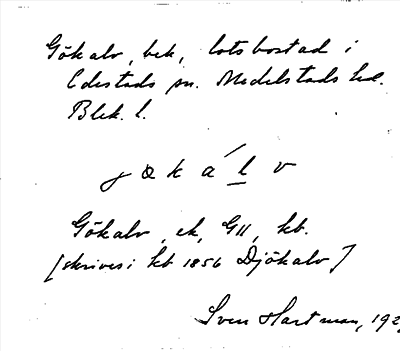 Gökalv, bek, lotsbostad i
Edestads sn. Medelstads hd.
Blek. l.
jøkálv
Gökalv, ek, GII, kb.
[skrives i kb 1856 Djökalv]
Sven Hartman, 192